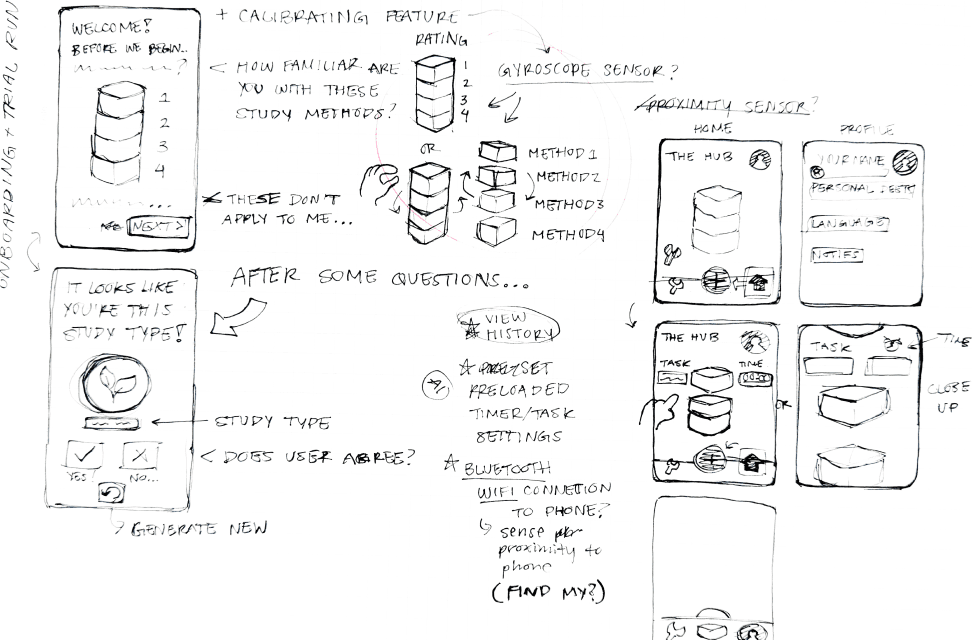 ONBOARDING + TRIAL RUN
WELCOME!
BEFORE WE BEGIN...
?
1
2
3
4
...
NEXT >
+ CALIBRATING FEATURE
< HOW FAMILIAR ARE
YOU WITH THESE
STUDY METHODS?
< THESE DON'T
APPLY TO ME...
RATING
1
2
3
4
OR
GYROSCOPE SENSOR?
METHOD 1
METHOD 2
METHOD 3
METHOD 4
AFTER SOME QUESTIONS...
IT LOOKS LIKE
YOU'RE THIS
STUDY TYPE!
STUDY TYPE
YES!
NO...
< DOES USER AGREE?
GENERATE NEW
VIEW
HISTORY
PRE/SET
PRELOADED
TIMER/TASK
SETTINGS
AI
BLUETOOTH
WIFI CONNETION
TO PHONE?
sense
proximity to
phone
(FIND MY?)
PROXIMITY SENSOR?
HOME
THE HUB
PROFILE
YOUR NAME
PERSONAL
LANGUAGE
NOTIFS
THE HUB
TASK
TIME
OR
TASK
TIME
CLOSE
UP